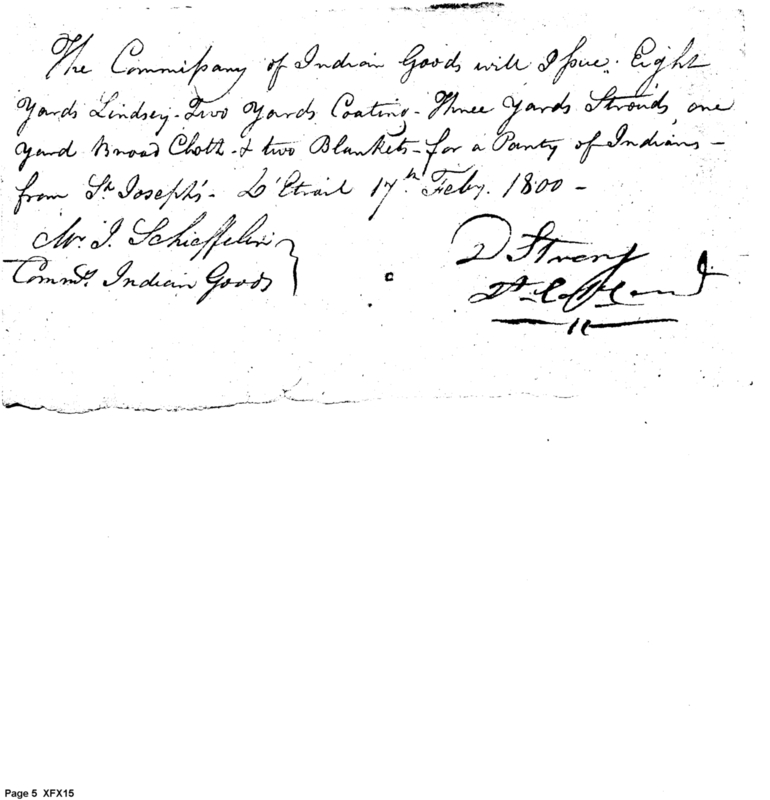 The Commissary of Indian Goods will Issue. Eight
Yards Lindsey - Two Yards Coating - Three Yards Strouds, one
Yard Broad Cloth - & two Blankets - for a Party of Indians -
from St. Joseph's - D'Etroit 17th Feby. 1800 -
Mr. J. Schieffelin
Commsy. Indian Goods
D Strong
Lt. Col.
Page 5 XFX15